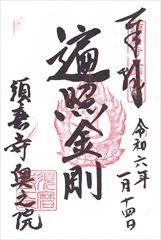 奉拝
令和六年
一月十四日
遍照金剛
須磨寺奥之院
須磨